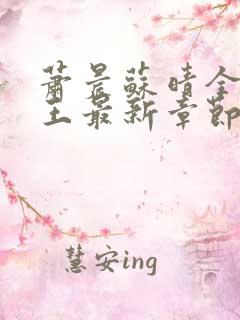 蕭晨蘇晴全
主最新章節
慧安ing